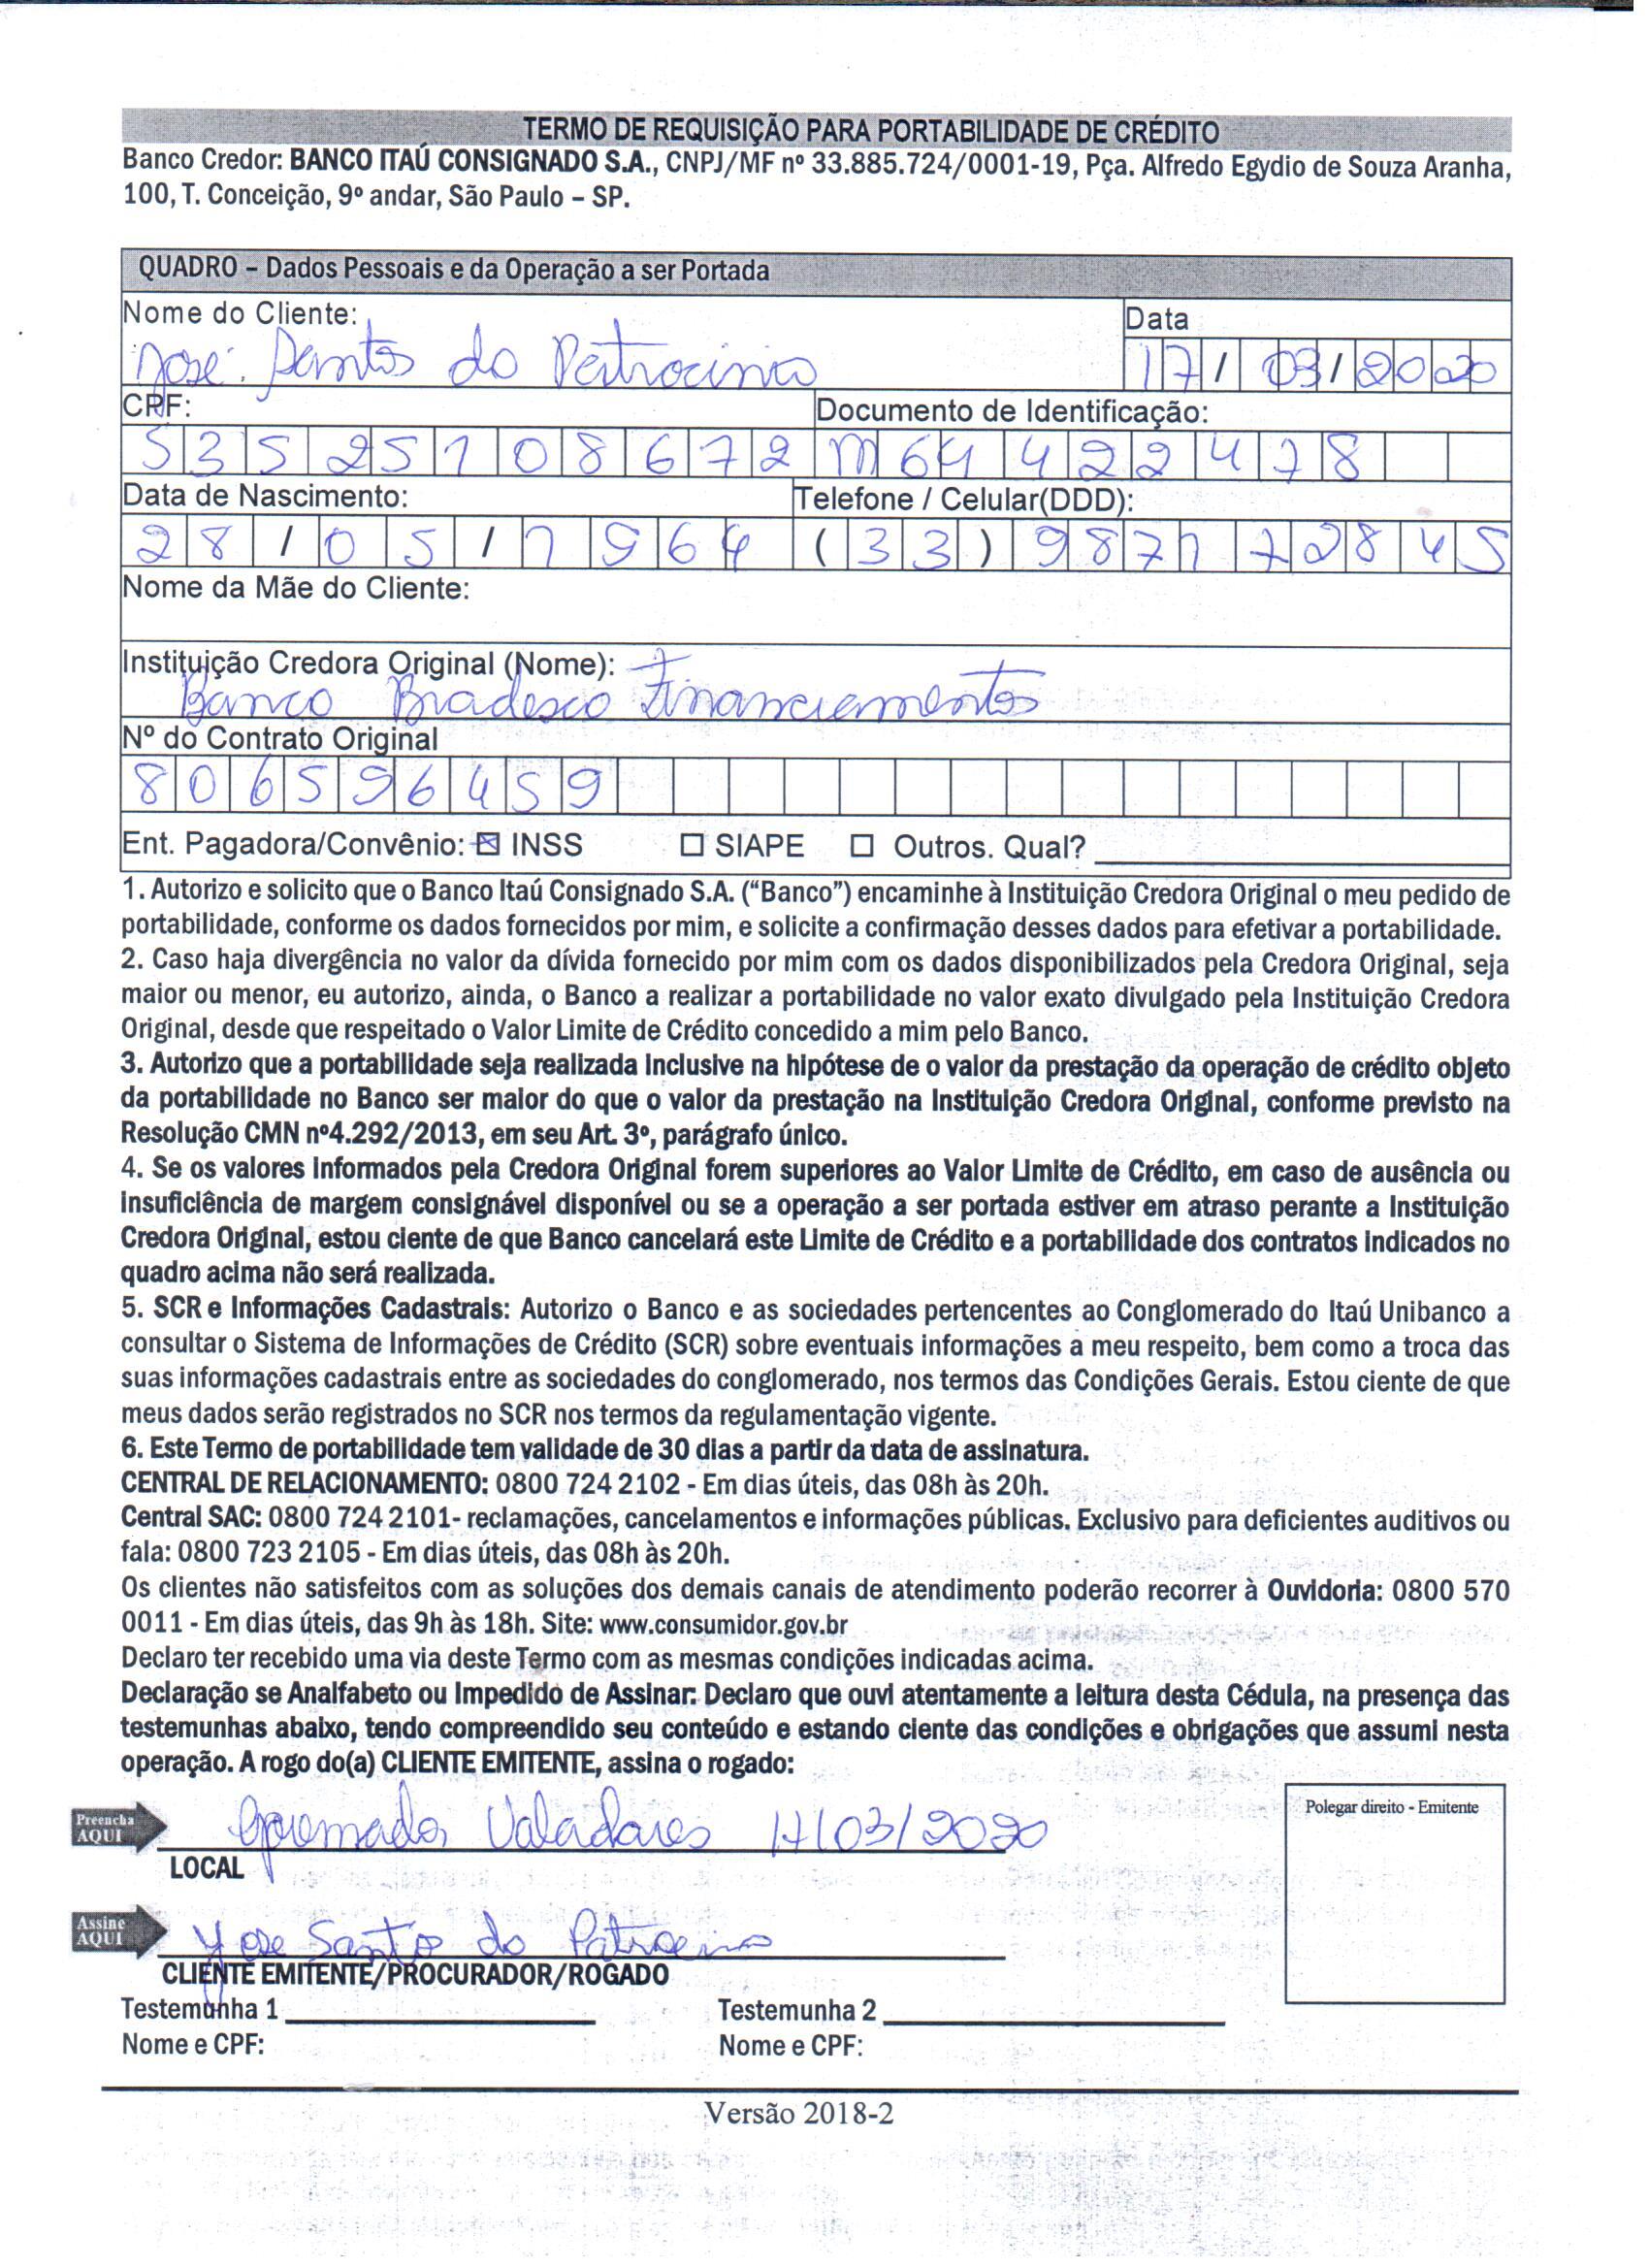 TERMO DE REQUISIÇÃO PARA PORTABILIDADE DE CRÉDITO
Banco Credor: BANCO ITAÚ CONSIGNADO S.A., CNPJ/MF nº 33.885.724/0001-19, Pça. Alfredo Egydio de Souza Aranha,
100, T. Conceição, 9º andar, São Paulo – SP.
QUADRO – Dados Pessoais e da Operação a ser Portada
Nome do Cliente: Data
José Santos do Patrocinio 17/03/2020
CPF: Documento de Identificação:
53525108672 M644422478
Data de Nascimento: Telefone / Celular(DDD):
28/05/1964 (33) 987172845
Nome da Mãe do Cliente:
Instituição Credora Original (Nome):
Banco Bradesco Financiamentos
Nº do Contrato Original
806596459
Ent. Pagadora/Convênio: ☒ INSS ☐ SIAPE ☐ Outros. Qual?
1. Autorizo e solicito que o Banco Itaú Consignado S.A. (“Banco”) encaminhe à Instituição Credora Original o meu pedido de
portabilidade, conforme os dados fornecidos por mim, e solicite a confirmação desses dados para efetivar a portabilidade.
2. Caso haja divergência no valor da dívida fornecido por mim com os dados disponibilizados pela Credora Original, seja
maior ou menor, eu autorizo, ainda, o Banco a realizar a portabilidade no valor exato divulgado pela Instituição Credora
Original, desde que respeitado o Valor Limite de Crédito concedido a mim pelo Banco.
3. Autorizo que a portabilidade seja realizada inclusive na hipótese de o valor da prestação da operação de crédito objeto
da portabilidade no Banco ser maior do que o valor da prestação na Instituição Credora Original, conforme previsto na
Resolução CMN nº4.292/2013, em seu Art. 3º, parágrafo único.
4. Se os valores informados pela Credora Original forem superiores ao Valor Limite de Crédito, em caso de ausência ou
insuficiência de margem consignável disponível ou se a operação a ser portada estiver em atraso perante a Instituição
Credora Original, estou ciente de que Banco cancelará este Limite de Crédito e a portabilidade dos contratos indicados no
quadro acima não será realizada.
5. SCR e Informações Cadastrais: Autorizo o Banco e as sociedades pertencentes ao Conglomerado do Itaú Unibanco a
consultar o Sistema de Informações de Crédito (SCR) sobre eventuais informações a meu respeito, bem como a troca das
suas informações cadastrais entre as sociedades do conglomerado, nos termos das Condições Gerais. Estou ciente de que
meus dados serão registrados no SCR nos termos da regulamentação vigente.
6. Este Termo de portabilidade tem validade de 30 dias a partir da data de assinatura.
CENTRAL DE RELACIONAMENTO: 0800 724 2102 - Em dias úteis, das 08h às 20h.
Central SAC: 0800 724 2101- reclamações, cancelamentos e informações públicas. Exclusivo para deficientes auditivos ou
fala: 0800 723 2105 - Em dias úteis, das 08h às 20h.
Os clientes não satisfeitos com as soluções dos demais canais de atendimento poderão recorrer à Ouvidoria: 0800 570
0011 - Em dias úteis, das 9h às 18h. Site: www.consumidor.gov.br
Declaro ter recebido uma via deste Termo com as mesmas condições indicadas acima.
Declaração se Analfabeto ou Impedido de Assinar: Declaro que ouvi atentamente a leitura desta Cédula, na presença das
testemunhas abaixo, tendo compreendido seu conteúdo e estando ciente das condições e obrigações que assumi nesta
operação. A rogo do(a) CLIENTE EMITENTE, assina o rogado:
Polegar direito - Emitente
Preencha
AQUI
Governador Valadares 17/03/2020
LOCAL
Assine
AQUI
Jose Santo do Patrocino
CLIENTE EMITENTE/PROCURADOR/ROGADO
Testemunha 1 Testemunha 2
Nome e CPF: Nome e CPF:
Versão 2018-2